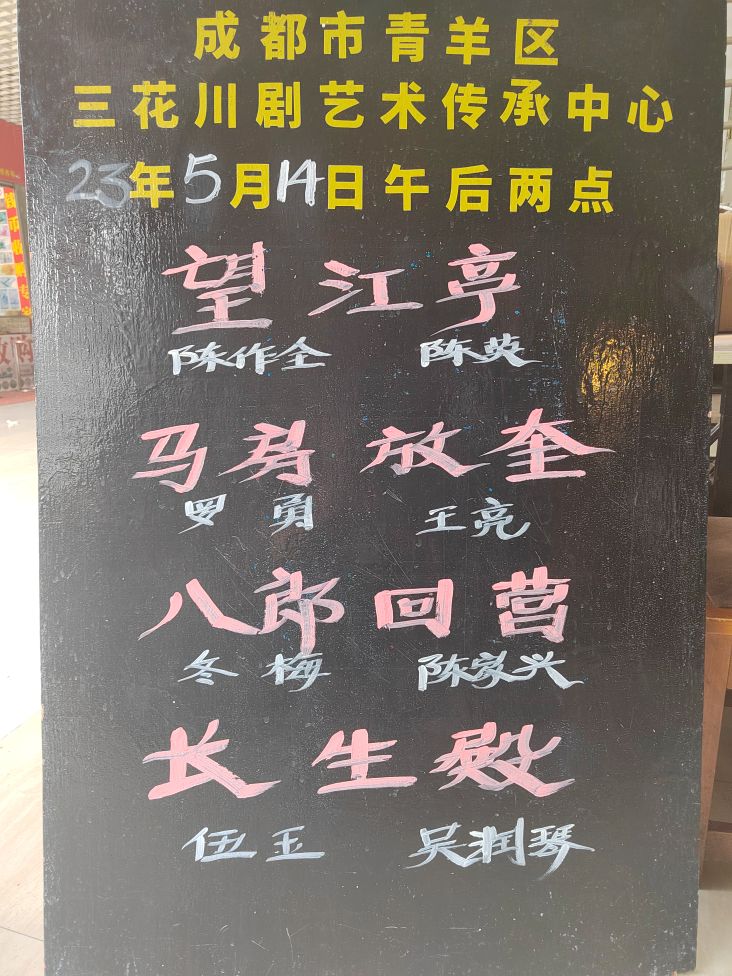 成都市青羊区
三花川剧艺术传承中心
23年5月14日午后两点
望江亭
陈作全 陈英
马房放奎
罗勇 王亮
八郎回营
冬梅 陈家兴
长生殿
伍玉 吴润琴